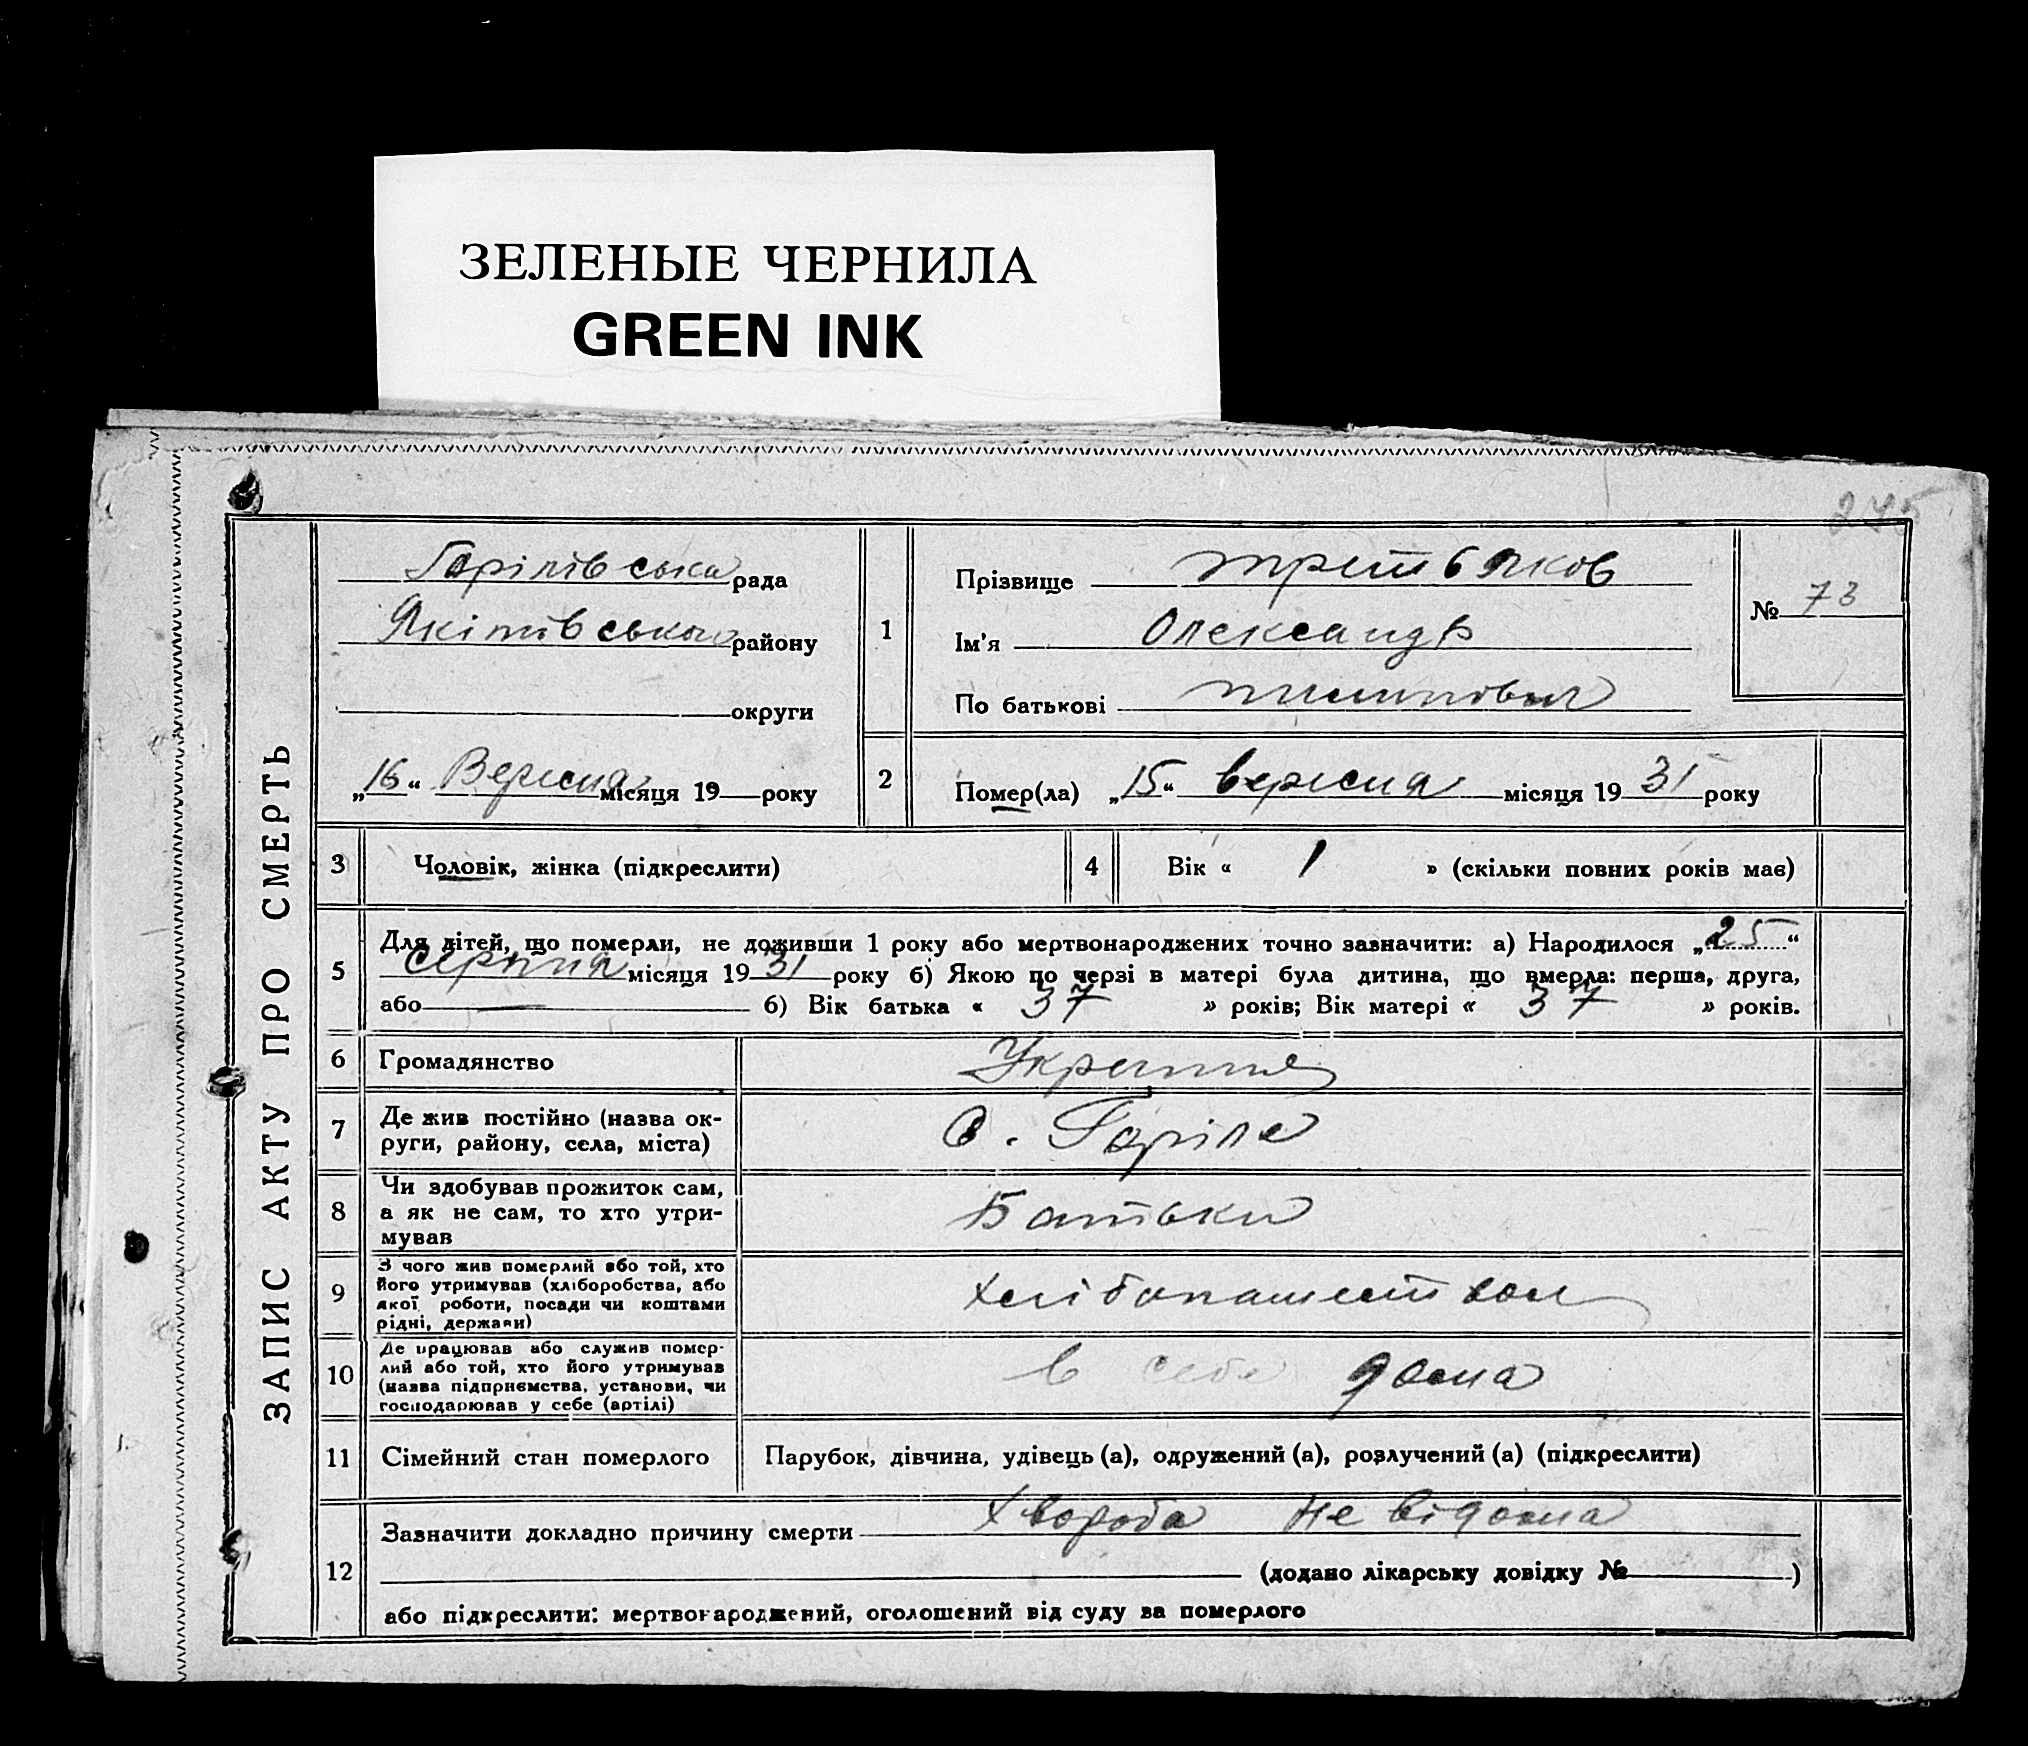 ЗЕЛЕНЫЕ ЧЕРНИЛА
GREEN INK
245
ЗАПИС АКТУ ПРО СМЕРТЬ
Гарілівська рада
району
округи
„16“ Вересня місяця 19 року
1
Прізвище Третьяков
Ім'я Олександр
По батькові пилипович
№ 73
2
Помер(ла) „15“ вересня місяця 1931 року
3
Чоловік, жінка (підкреслити)
4
Вік « 1 » (скільки повних років має)
5
Для дітей, що померли, не доживши 1 року або мертвонароджених точно зазначити: а) Народилося „25“
серпня місяця 1931 року б) Якою по черзі в матері була дитина, що вмерла: перша, друга,
або — б) Вік батька « 37 » років; Вік матері « 37 » років.
6
Громадянство
7
Де жив постійно (назва ок-
руги, району, села, міста)
с. Гаріле
8
Чи здобував прожиток сам,
а як не сам, то хто утри-
мував
Батьки
9
З чого жив померлий або той, хто
його утримував (хліборобства, або
якої роботи, посади чи коштами
рідні, держави)
хлібопашеством
10
Де працював або служив помер-
лий або той, хто його утримував
(назва підприємства, установи, чи
господарював у себе (артілі)
в себе дома
11
Сімейний стан померлого
Парубок, дівчина, удівець (а), одружений (а), розлучений (а) (підкреслити)
12
Зазначити докладно причину смерти Хвороба не відома
(додано лікарську довідку № )
або підкреслити: мертвонароджений, оголошений від суду за померлого